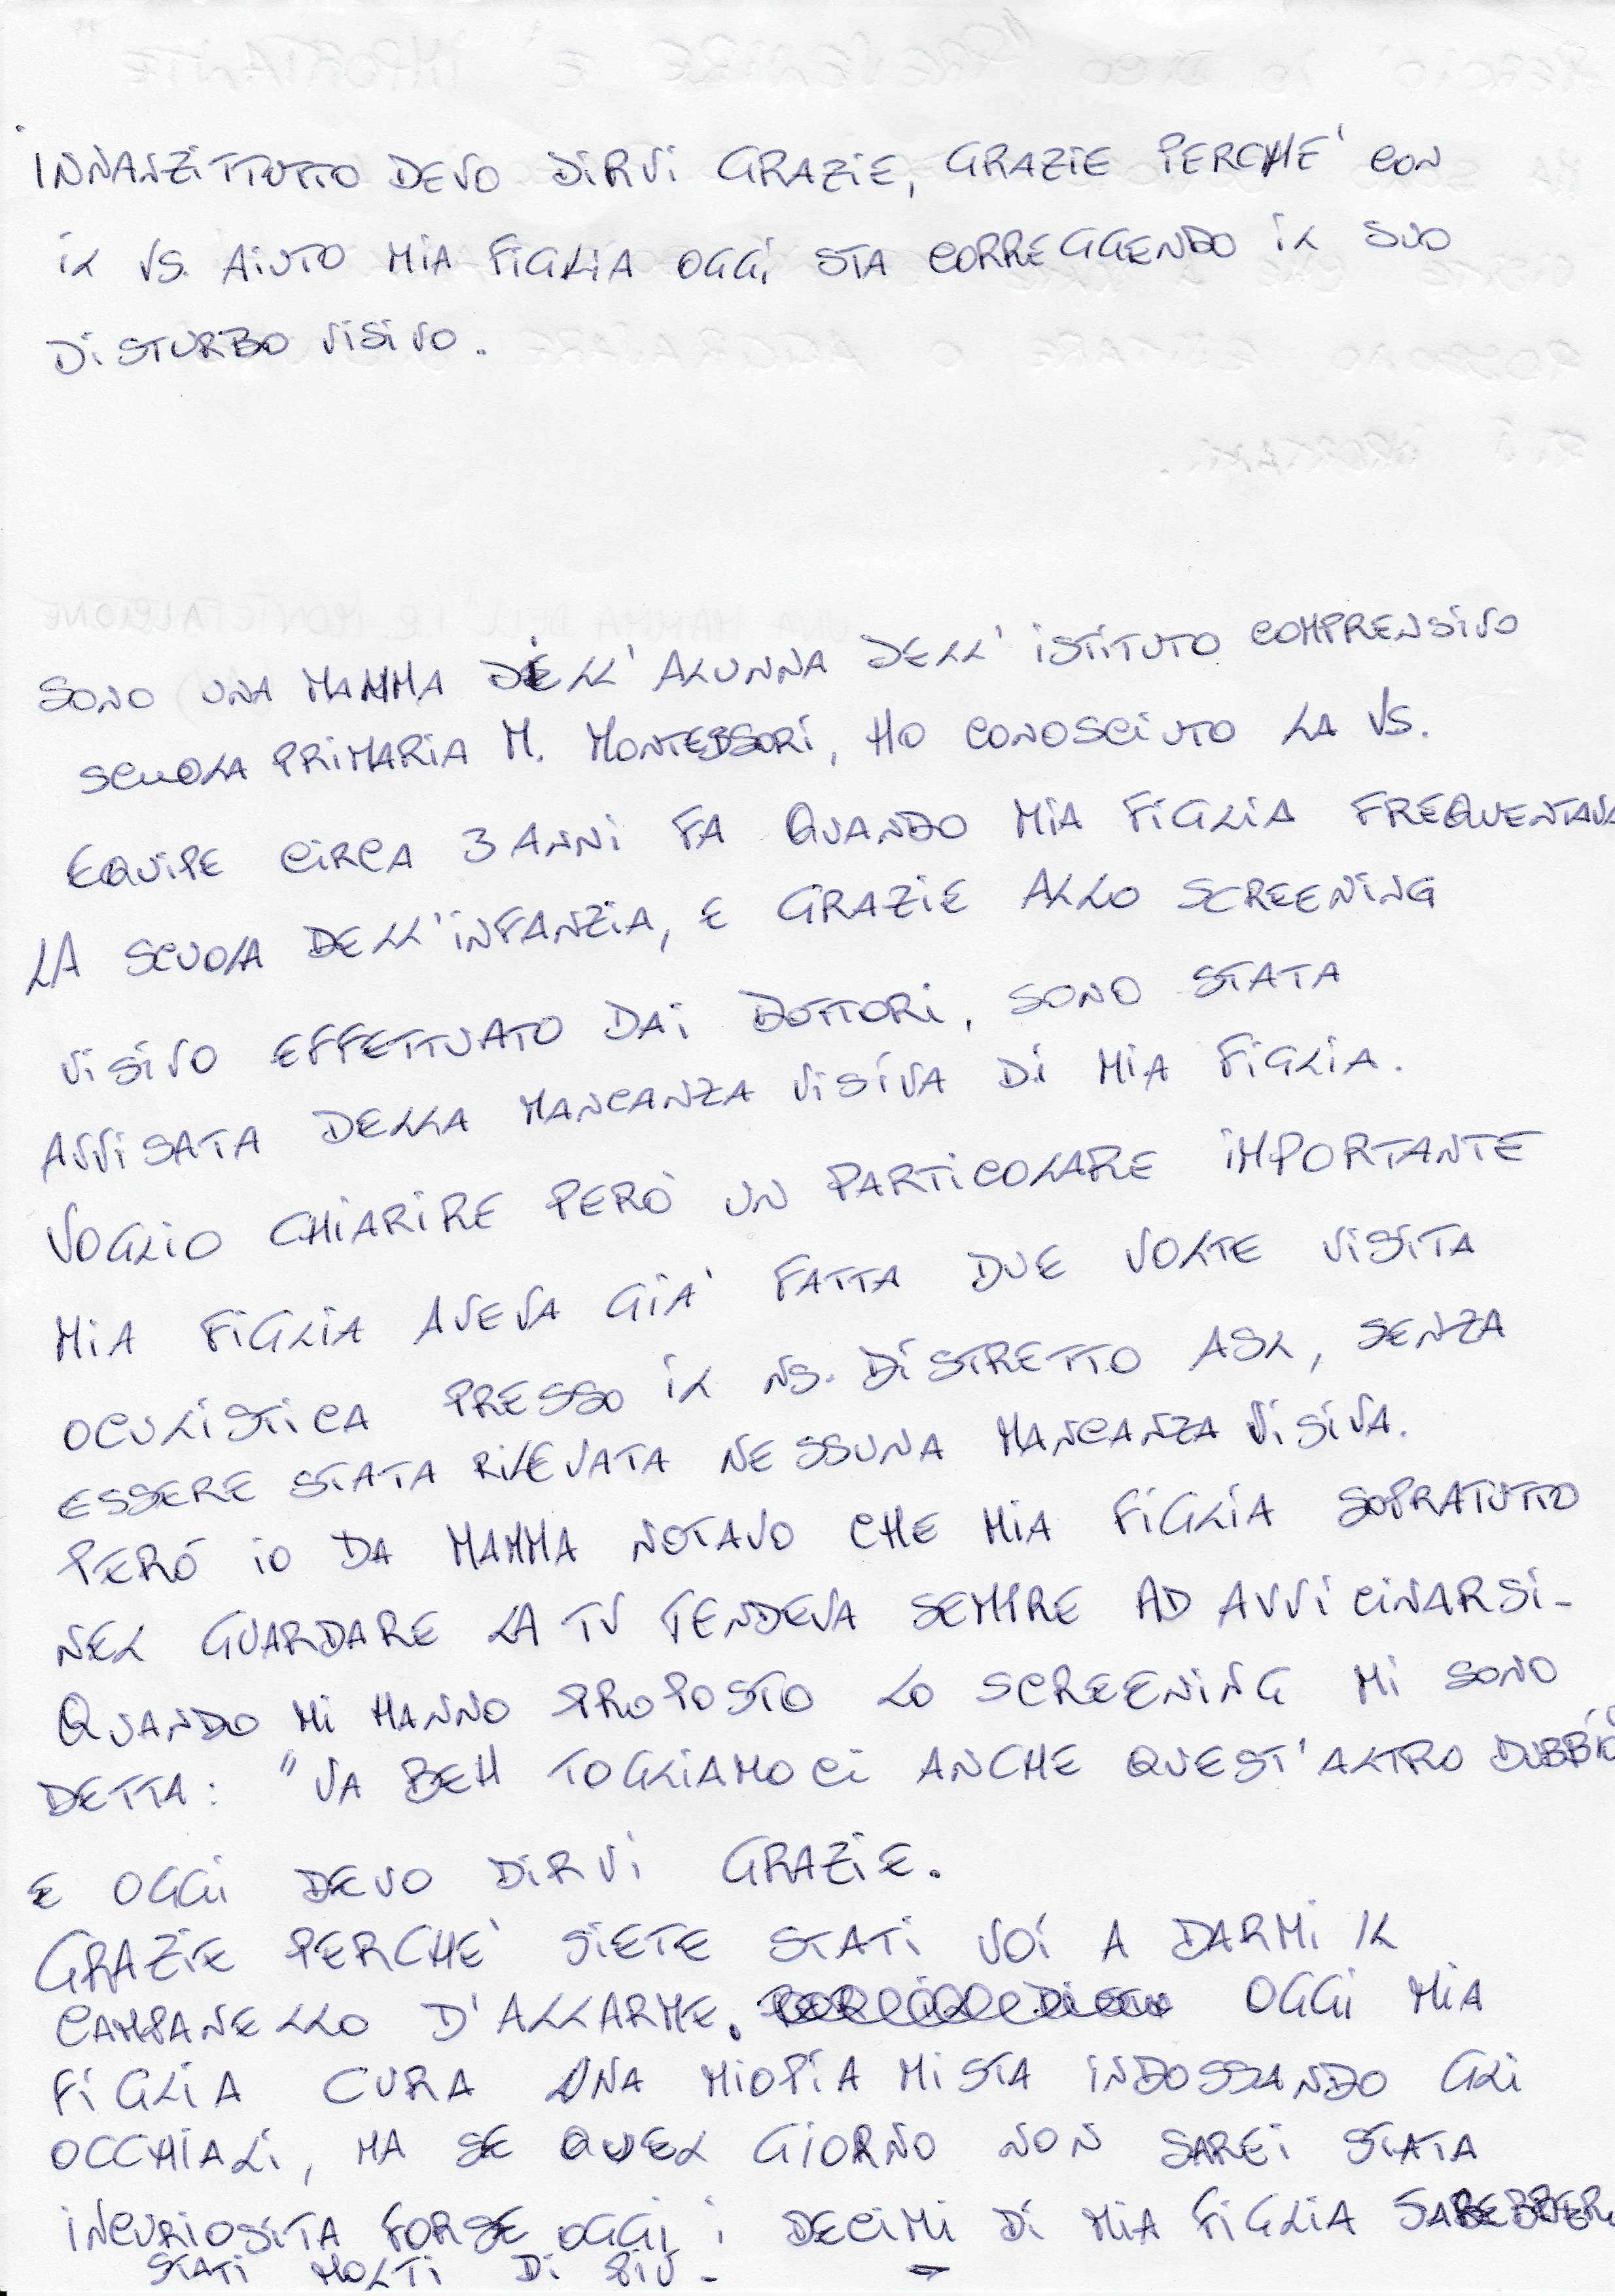 INNANZITTUTTO DEVO DIRVI GRAZIE, GRAZIE PERCHE' CON
IL VS. AIUTO MIA FIGLIA OGGI STA CORREGGENDO IL SUO
DISTURBO VISIVO.
SONO UNA MAMMA DELL' ALUNNA DELL' ISTITUTO COMPRENSIVO
SCUOLA PRIMARIA M. MONTESSORI, HO CONOSCIUTO LA VS.
EQUIPE CIRCA 3 ANNI FA QUANDO MIA FIGLIA FREQUENTAVA
LA SCUOLA DELL'INFANZIA, E GRAZIE ALLO SCREENING
VISIVO EFFETTUATO DAI DOTTORI, SONO STATA
AVVISATA DELLA MANCANZA VISIVA DI MIA FIGLIA.
VOGLIO CHIARIRE PERÒ UN PARTICOLARE IMPORTANTE
MIA FIGLIA AVEVA GIA' FATTA DUE VOLTE VISITA
OCULISTICA PRESSO IL NS. DISTRETTO ASL, SENZA
ESSERE STATA RILEVATA NESSUNA MANCANZA VISIVA.
PERÓ IO DA MAMMA NOTAVO CHE MIA FIGLIA SOPRATUTTO
NEL GUARDARE LA TV TENDEVA SEMPRE AD AVVICINARSI-
QUANDO MI HANNO PROPOSTO LO SCREENING MI SONO
DETTA: "VA BEH TOGLIAMOCI ANCHE QUEST'ALTRO DUBBIO"
E OGGI DEVO DIRVI GRAZIE.
GRAZIE PERCHE' SIETE STATI VOI A DARMI IL
CAMPANELLO D'ALLARME. OGGI MIA
FIGLIA CURA UNA MIOPIA MISTA INDOSSANDO GLI
OCCHIALI, MA SE QUEL GIORNO NON SAREI STATA
INCURIOSITA FORSE OGGI I DECIMI DI MIA FIGLIA SAREBBERO
STATI MOLTI DI PIÙ -